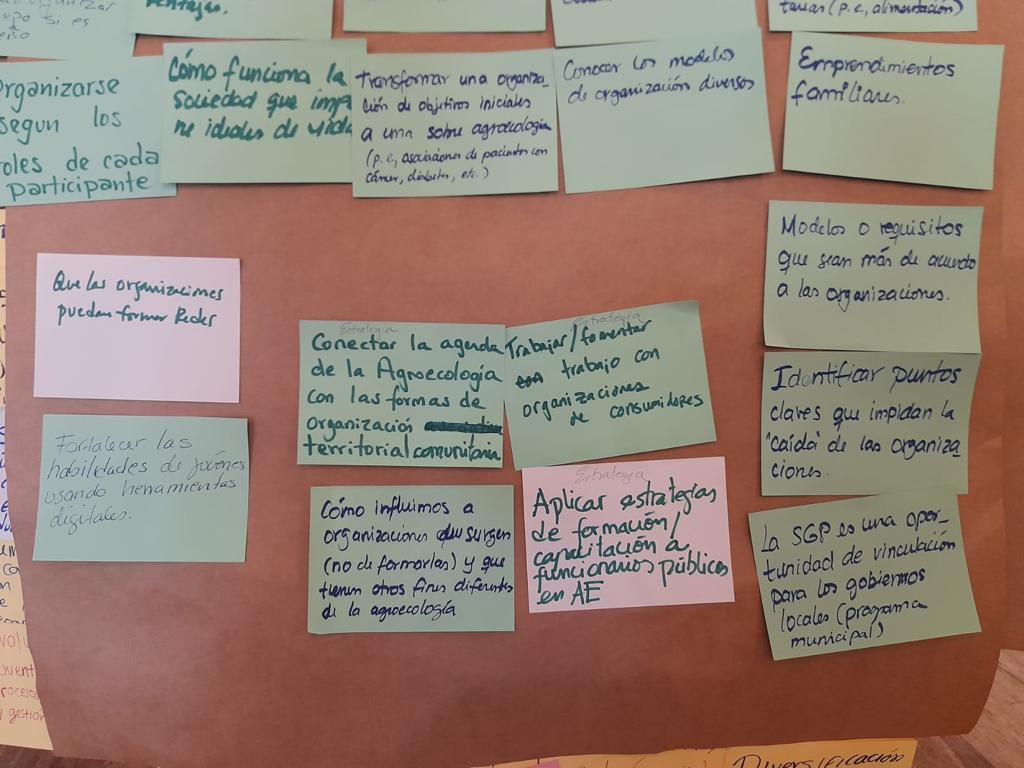 upo si es
ventajas.
tareas (p.e, alimentación)
Organizarse
segun los
roles de cada
participante
Cómo funciona la
sociedad que impo
ne ideales de vida
Transformar una organiza-
ción de objetivos iniciales
a una sobre agroecología
(p.e, asociaciones de pacientes con
cáncer, diabetes, etc.)
Conocer los modelos
de organización diversos
Emprendimientos
familiares.
Modelos o requisitos
que sean más de acuerdo
a las organizaciones.
Que las organizaciones
puedan formar Redes
Estrategia
Conectar la agenda
de la Agroecología
con las formas de
organización
territorial comunitaria
Estrategia
Trabajar/fomentar
trabajo con
organizaciones
de consumidores
Identificar puntos
claves que impidan la
"caída" de las organiza
ciones.
Fortalecer las
habilidades de jóvenes
usando herramientas
digitales.
Cómo influimos a
organizaciones que surgen
(no de formarlas) y que
tienen otros fines diferentes
de la agroecología
Estrategia
Aplicar estrategias
de formación/
capacitación a
funcionarios públicos
en AE
La SGP es una opor-
tunidad de vinculación
para los gobiernos
locales (programa
municipal)
y gestión
Diversificación